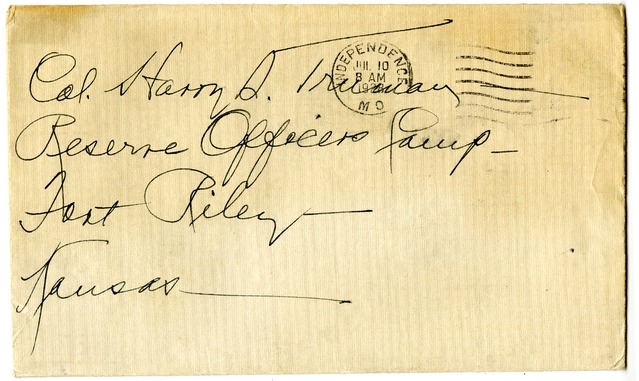 Col. Harry S. Truman
Reserve Officers Camp
Fort Riley
Kansas
INDEPENDENCE
JUL 10
8 AM
MO